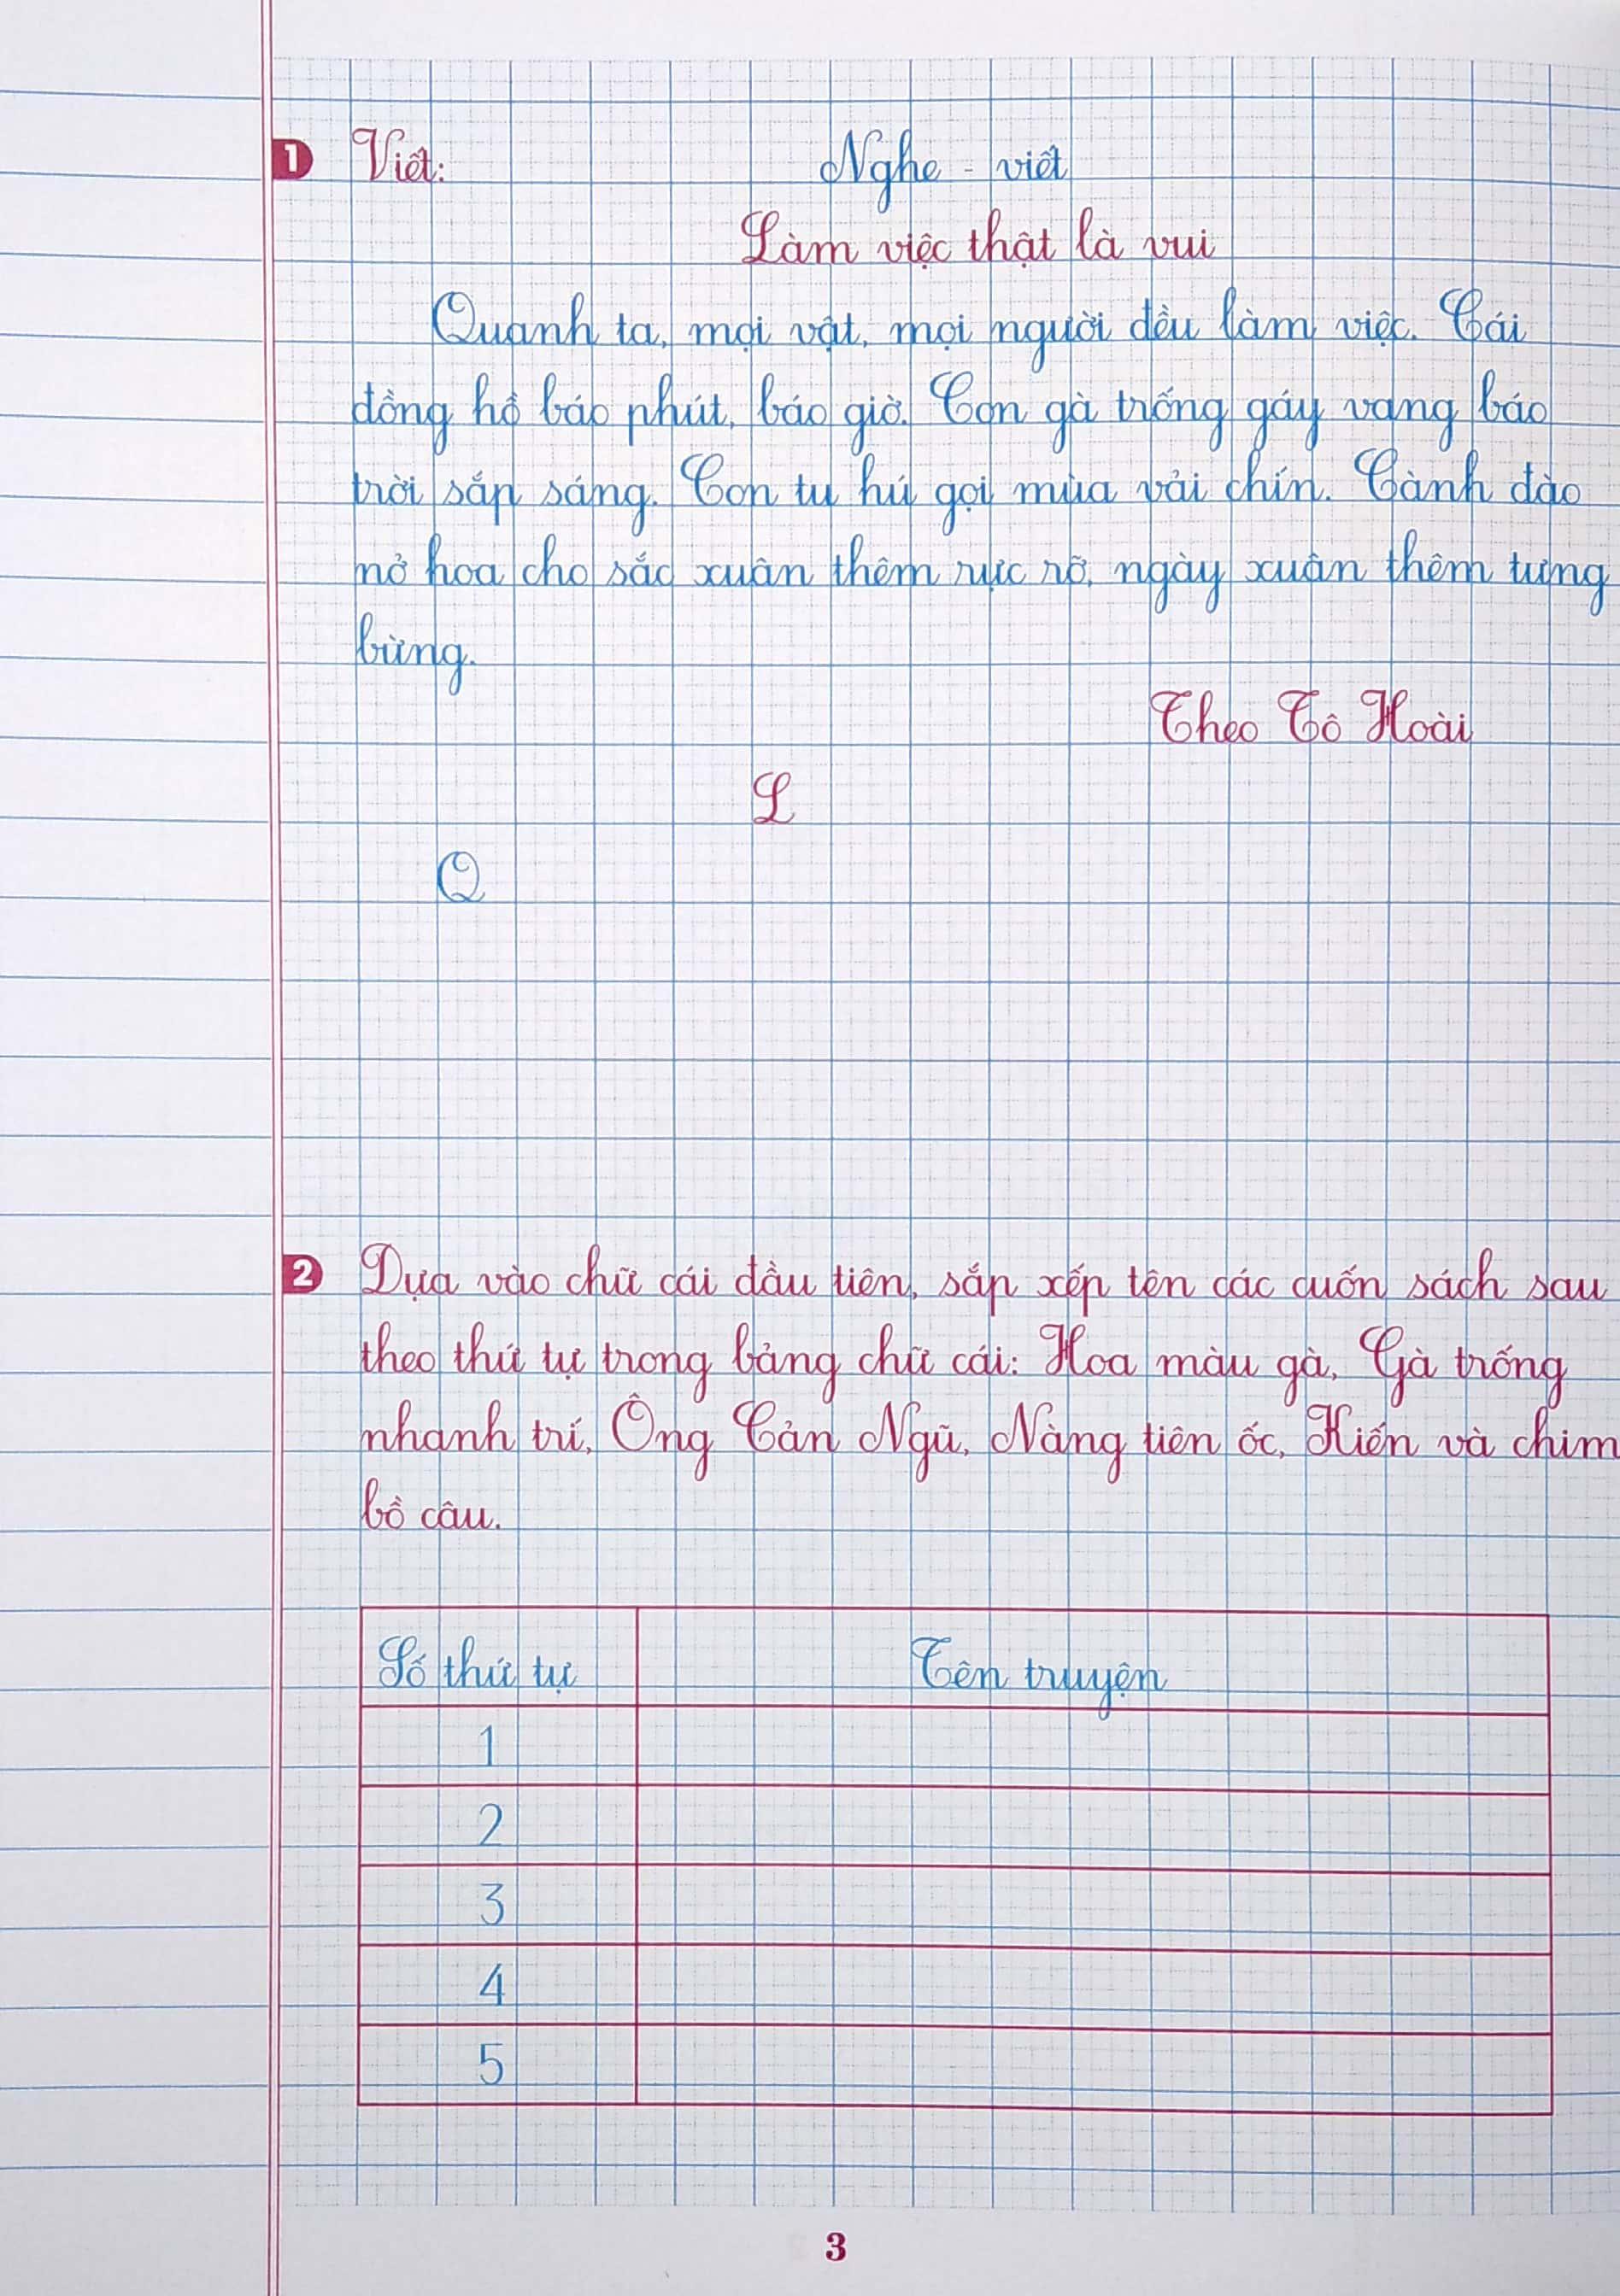 1 Viết: Nghe - viết
Làm việc thật là vui
Quanh ta, mọi vật, mọi người đều làm việc. Cái
đồng hồ báo phút, báo giờ. Con gà trống gáy vang báo
trời sắp sáng. Con tu hú gọi mùa vải chín. Cành đào
nở hoa cho sắc xuân thêm rực rỡ, ngày xuân thêm tưng
bừng.
Theo Tô Hoài
L
Q
2 Dựa vào chữ cái đầu tiên, sắp xếp tên các cuốn sách sau
theo thứ tự trong bảng chữ cái: Hoa màu gà, Gà trống
nhanh trí, Ông Cản Ngũ, Nàng tiên ốc, Kiến và chim
bồ câu.
Số thứ tự Tên truyện
1
2
3
4
5
3